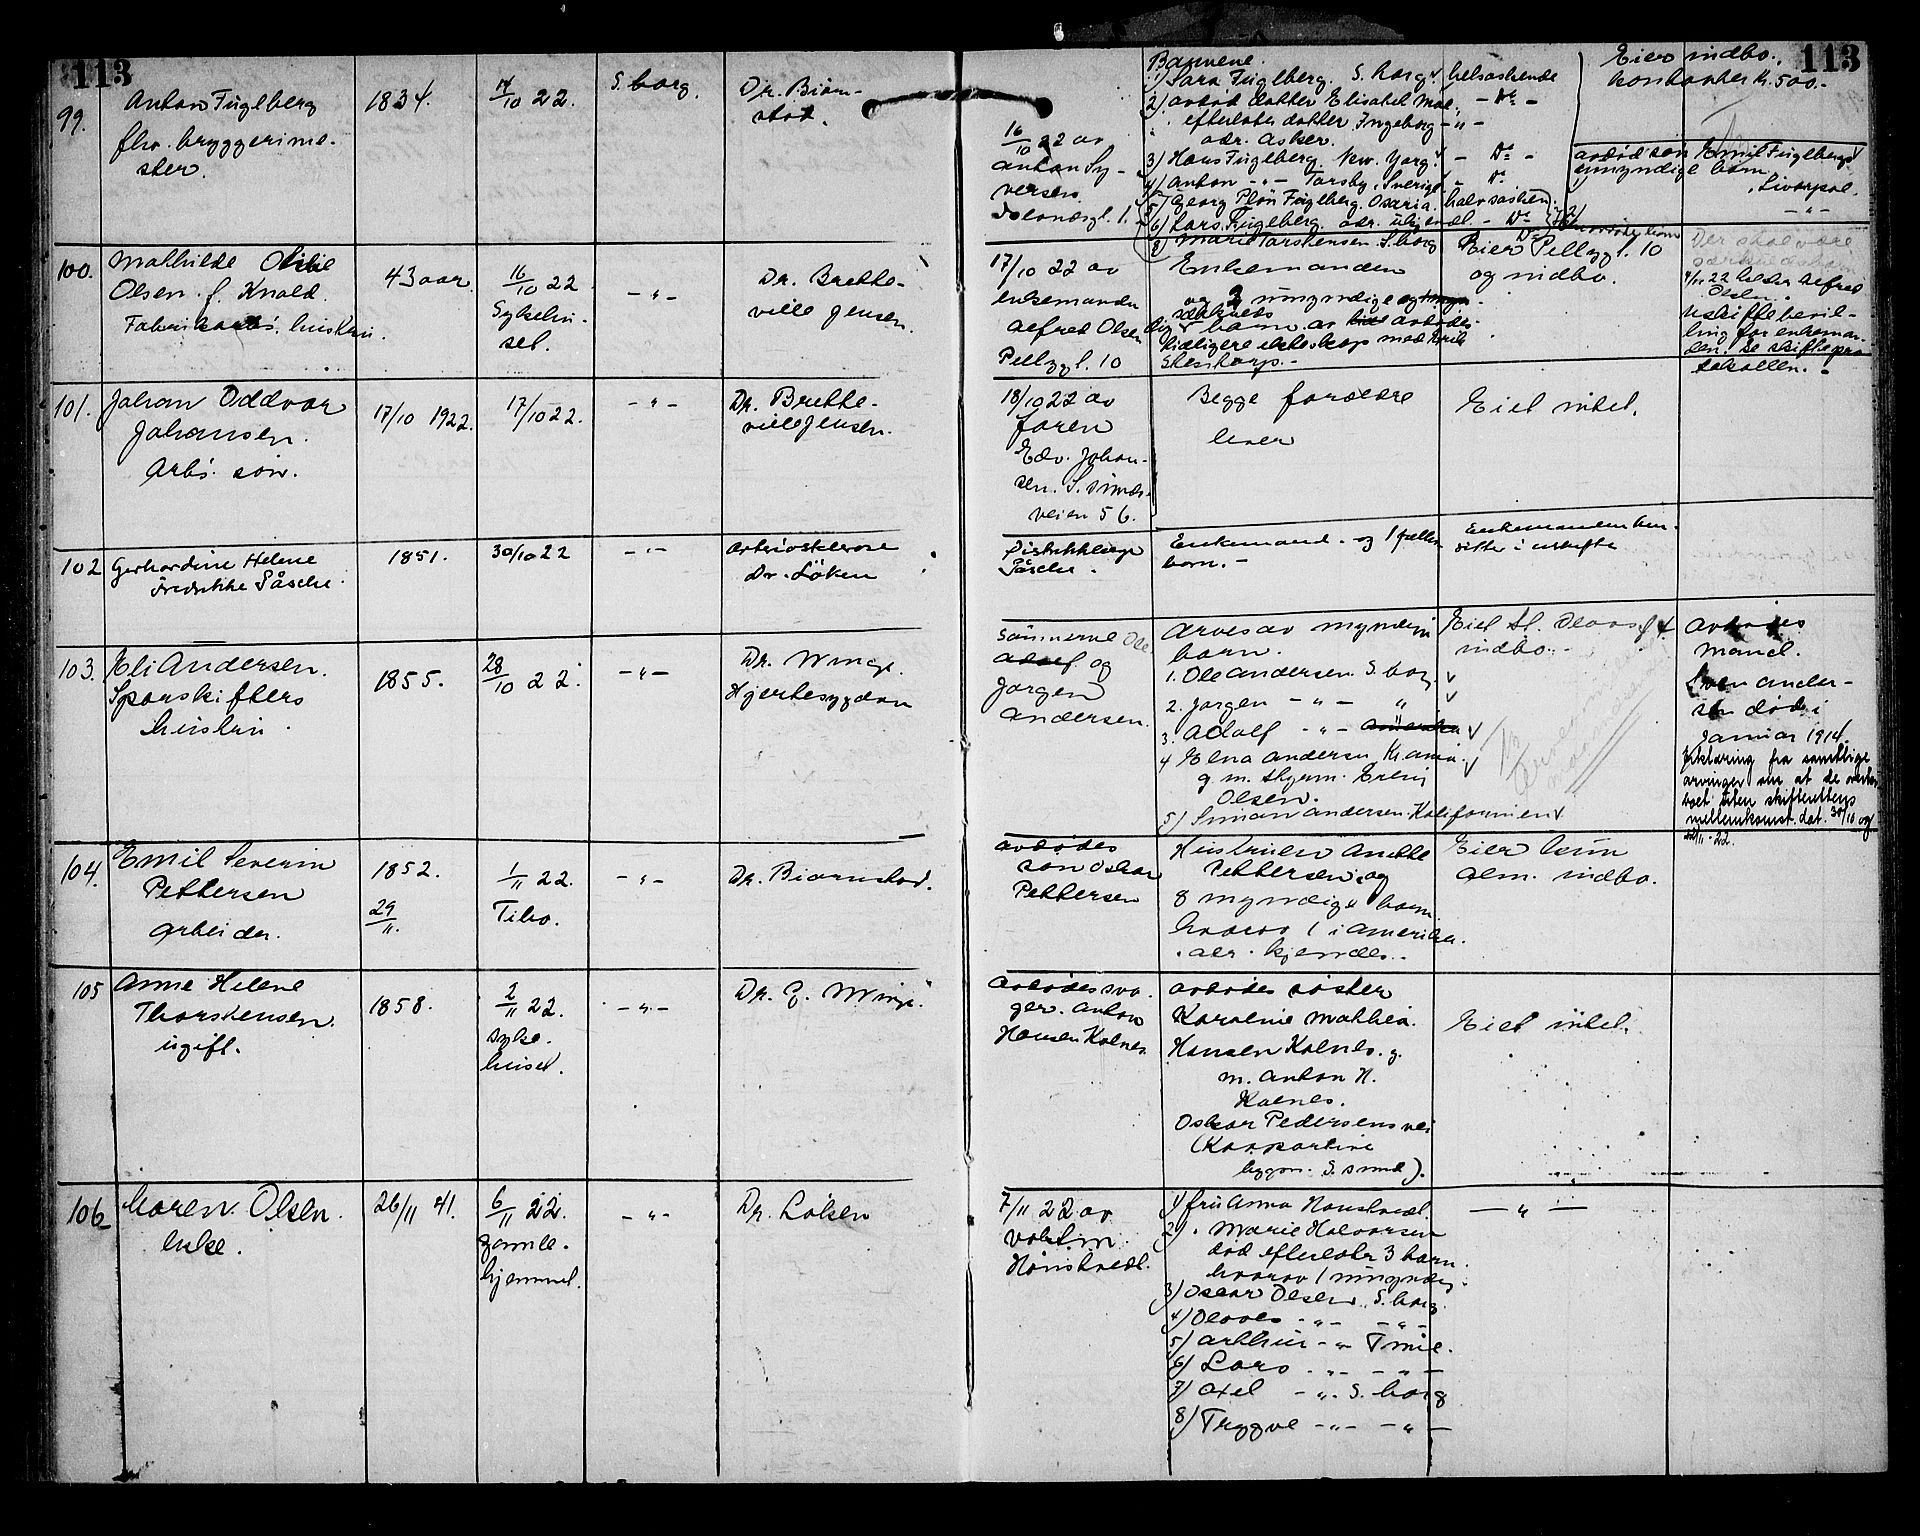 113
113
99.
Anton Fuglberg
fhv. bryggerime-
ster.
1834.
14/10 22.
S.borg.
Dr. Bjørn-
stad.
16/10 22 av
Anton Sy-
versen
Barnene.
1) Sara Fuglberg. S.borg. helsøskende
2) avdød datter Elisabet Moe. - Do -
efterlater datter Ingeborg - " -
adr. Asker.
3) Hans Fuglberg. New York. - Do -
4) Anton - " - Torsby, Sverige. - Do
5) Georg Pløn Fuglberg. halvsøsken.
6) Lars Fuglberg. adr. ukjendt - Do
8) Marie Torstensen S.borg Do
Eier indbo.
kontanter kr. 500.-
avdød søn Emil Fuglbergs
umyndige barn
Liverpool.
- " -
100.
Mathilde Otilie
Olsen f. Knold.
Fabrikarb. hustru.
43 aar.
16/10 22
Sykehu-
set.
- " -
Dr. Brette-
ville Jensen.
17/10 22 av
enkemanden
Alfred Olsen
Pellygt. 10
Enkemanden
og 2 umyndige
særkuds
barn av avdødes
tidligere ekteskap med
Eier Pellygt. 10
og indbo.
Der skal være
4/11 22 Alfred
Olsen.
Uskiftebevil-
ling for enkeman-
den. Se skiftepro
tokollen. -
101.
Johan Oddvar
Johansen.
Arb. søn.
17/10 1922.
17/10 22.
- " -
Dr. Brette-
ville Jensen.
18/10 22 av
faren
Edv. Johan-
sen. S.minde-
veien 56.
Begge forældre
lever
Eiet intet.
102
Gerhardine Helene
Fredrikke Påsche.
1851.
30/10 22
- " -
Arteriosklerose
Dr. Løken
Påsche.
Enkemand. og 1 fælles
barn. -
Enkemanden hen-
sitter i uskifte
103.
Eli Andersen.
Sporskifters
hustru.
1855.
28/10 22.
- " -
Dr. Winge.
Hjertesygdom
Sønnerne Ole
Adolf og
Jørgen
Andersen.
Arves av myndige
barn.
1. Ole Andersen. S.borg.
2. Jørgen - " - "
3. Adolf - " -
4 Elna Andersen Kr.ania.
g. m. styrm. Erling
Olsen.
5) Simon Andersen. Kalifornien
indbo. -
Avdødes
mand.
Sven Ander-
sen døde i
Januar 1914.
Erklæring fra samtlige
arvinger om at de overtar
boet uten skifterettens
mellemkomst. dat. 30/10 og
22.
104.
Emil Severin
Pettersen
arbeider.
1852.
29/11.
1/11 22.
Tibo.
- " -
Dr. Bjørnstad.
Avdødes
søn Oskar
Pettersen
Hustruen Anette
Pettersen og
8 myndige barn
hvorav 1 i Amerika.
adr. kjendes. -
Eier kun
alm. indbo.
105
Anne Helene
Thorstensen.
ugift.
1858.
2/11 22.
Syke-
huset.
- " -
Dr. E. Winge.
Avdødes svo-
ger. Anton
Hansen Kalnes.
Avdødes søster
Karoline Mathea
Hansen Kalnes. g.
m. Anton H.
Kalnes.
Oskar Pedersens vei
(Kooperative
byggn. S.sund).
Eiet intet.
106
Maren Olsen.
enke.
26/11 41.
6/11 22.
Gamle-
hjemmet.
- " -
Dr. Løken
7/11 22 av
Hønstvedt.
1) fru Anna Hønstvedt.
2) " Marie Halvorsen
død efterlater 3 barn
hvorav 1 umyndig.
3) Oscar Olsen. S.borg.
4) Olaves - " - - " -
5) Arthur - " - Tune.
6) Lars - " - - " -
7) Axel - " - S.borg
8) Trygve - " - - " -
- " -